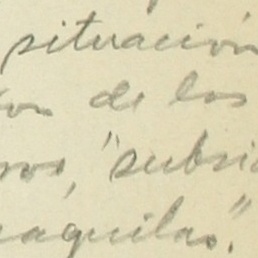 situación
de los
"subsi
aquilas."